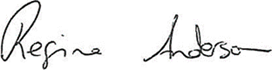 Regina Anderson